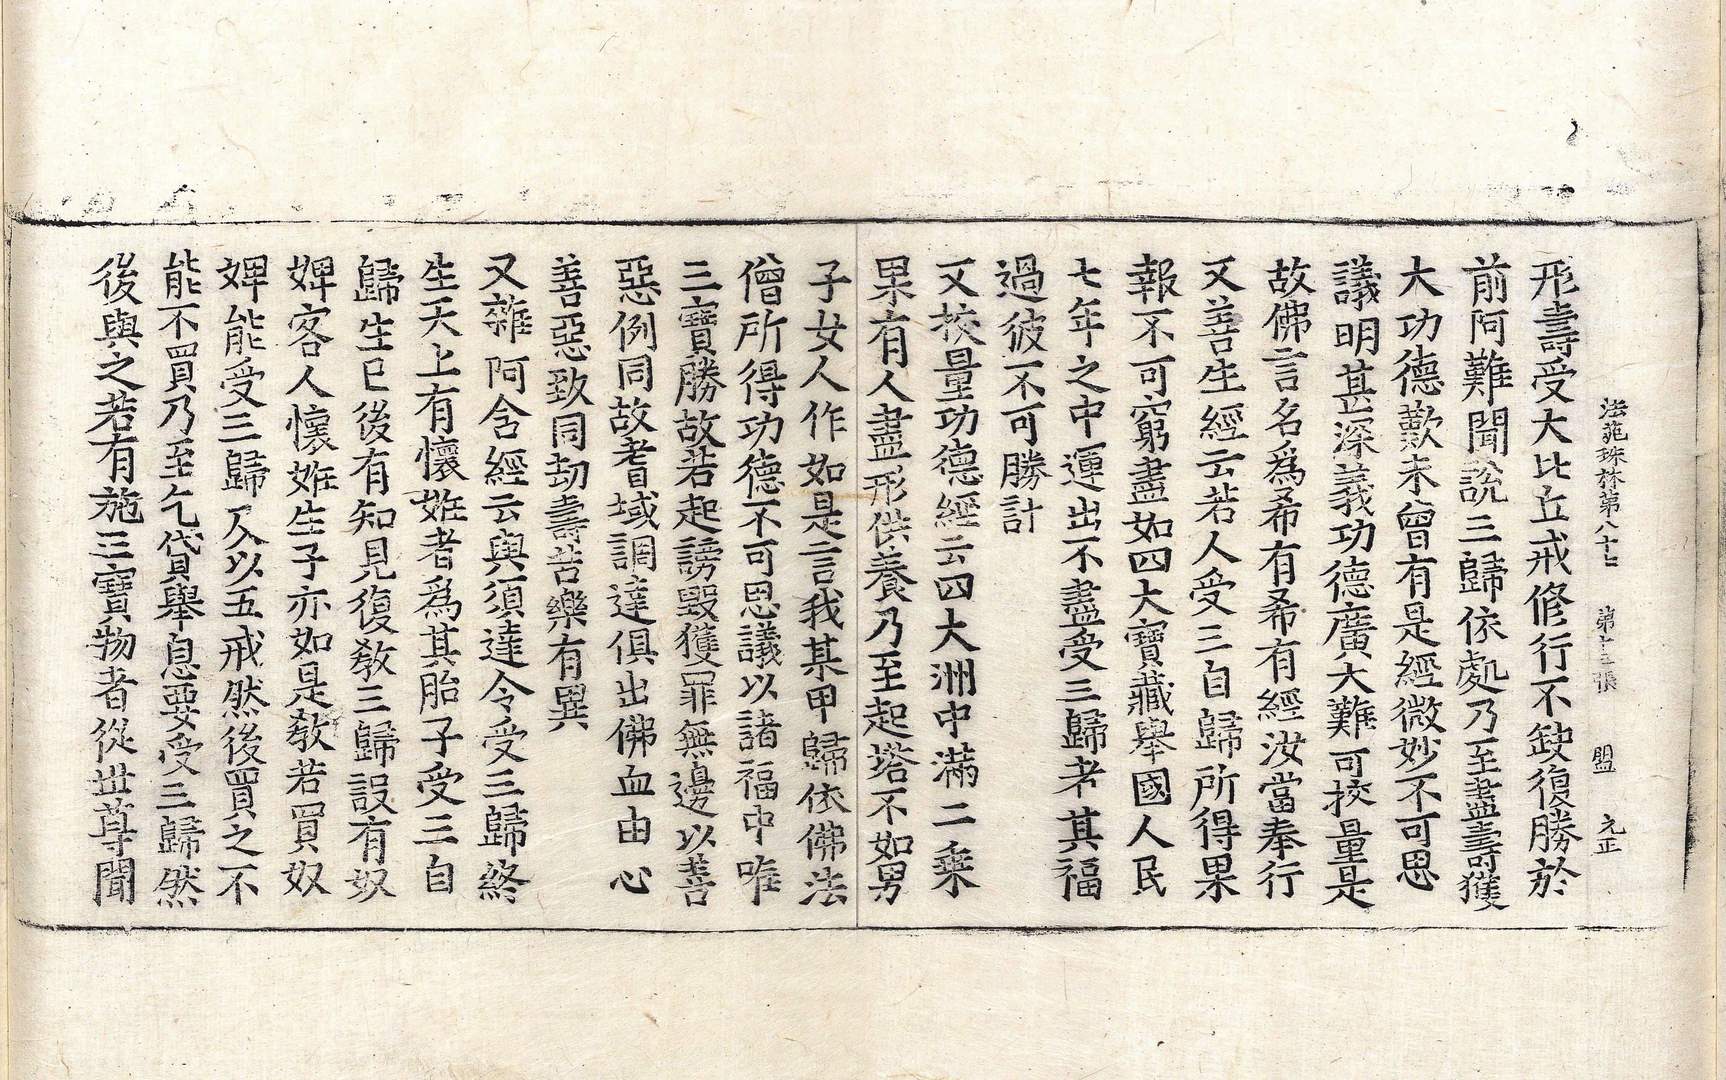 法苑珠林第八十七 第十三張 盟 元正
形壽受大比丘戒修行不缺復勝於
前阿難聞說三歸依處乃至盡壽獲
大功德歎未曾有是經微妙不可思
議明甚深義功德廣大難可挍量是
故佛言名爲希有希有經汝當奉行
又善生經云若人受三自歸所得果
報不可窮盡如四大寶藏舉國人民
七年之中運出不盡受三歸者其福
過彼不可勝計
又挍量功德經云四大洲中滿二乘
果有人盡形供養乃至起塔不如男
子女人作如是言我某甲歸依佛法
僧所得功德不可思議以諸福中唯
三寶勝故若起謗毀獲罪無邊以善
惡例同故耆域調達俱出佛血由心
善惡致同劫壽苦樂有異
又雜阿含經云與須達令受三歸終
生天上有懷姙者爲其胎子受三自
歸生已後有知見復教三歸設有奴
婢客人懷姙生子亦如是教若買奴
婢能受三歸及以五戒然後買之不
能不買乃至乞貸舉息要受三歸然
後與之若有施三寶物者從世尊聞